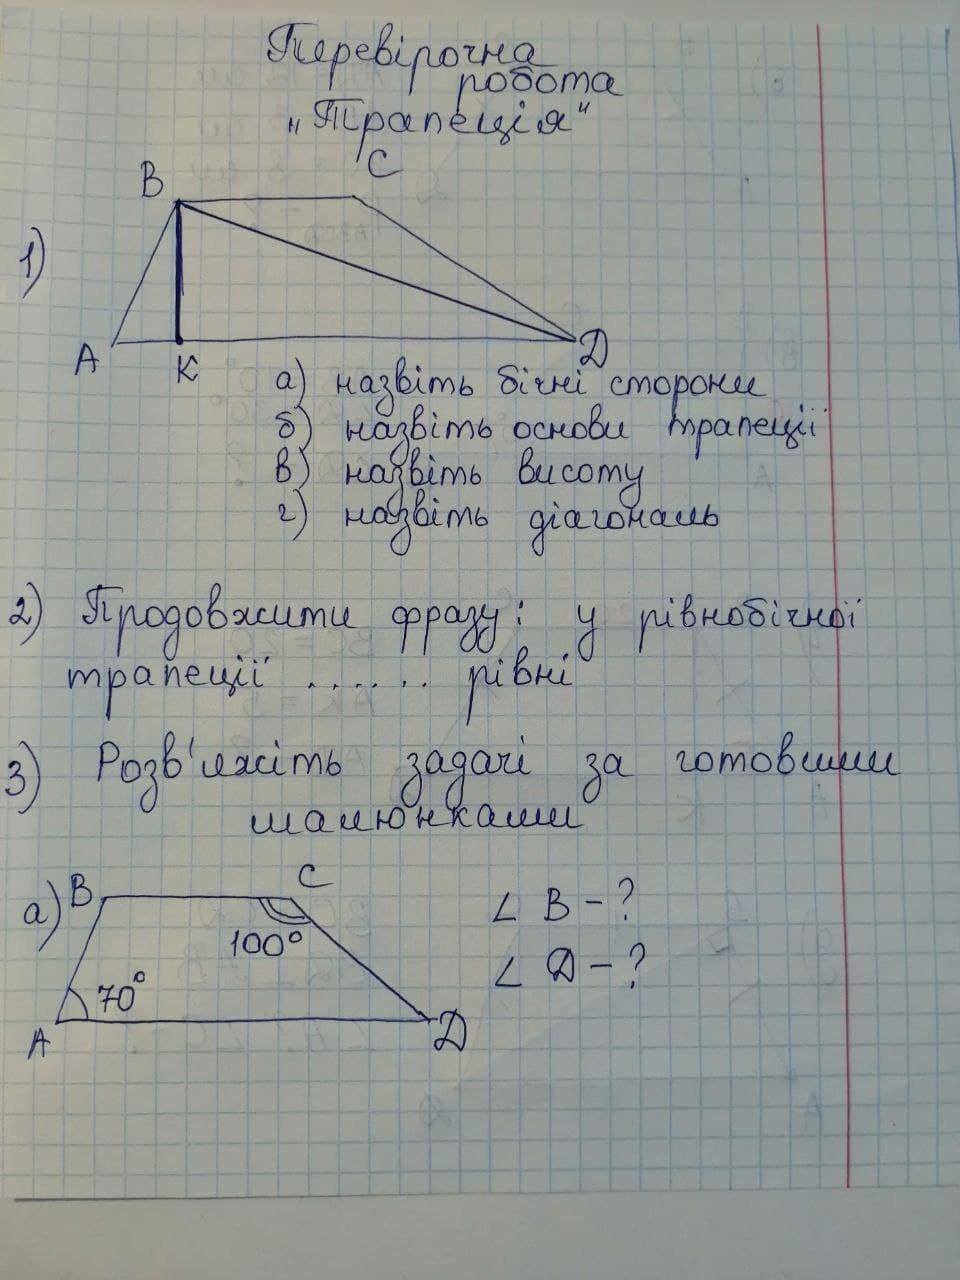 Перевірочна
робота
"Трапеція"
B C
1)
A K D
а) назвіть бічні сторони
б) назвіть основи трапеції
в) назвіть висоту
г) назвіть діагональ
2) Продовжити фразу: у рівнобічної
трапеції ...... рівні
3) Розв'яжіть задачі за готовими
малюнками
а) B C ∠ B - ?
100°
70° ∠ D - ?
A D